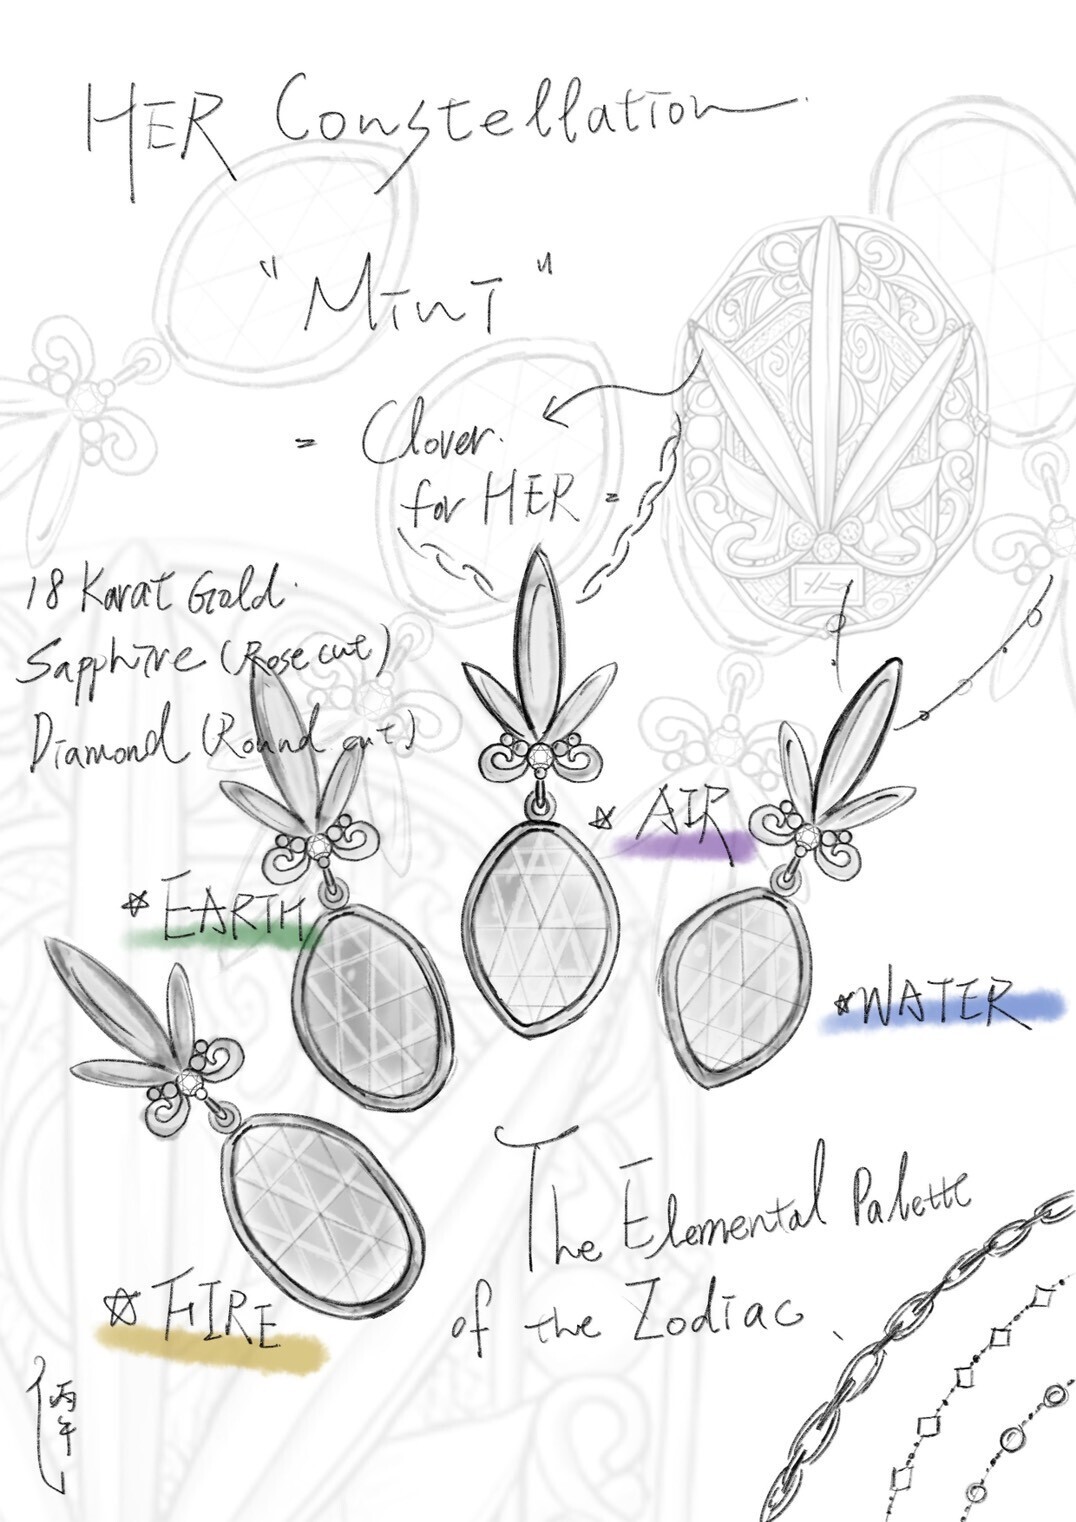 HER Constellation
"Mint"
= Clover.
for HER =
18 Karat Gold.
Sapphire (Rose cut)
Diamond (Round cut)
☆ AIR
☆ EARTH
☆ WATER
The Elemental Palette
of the Zodiac
☆ FIRE
丙午